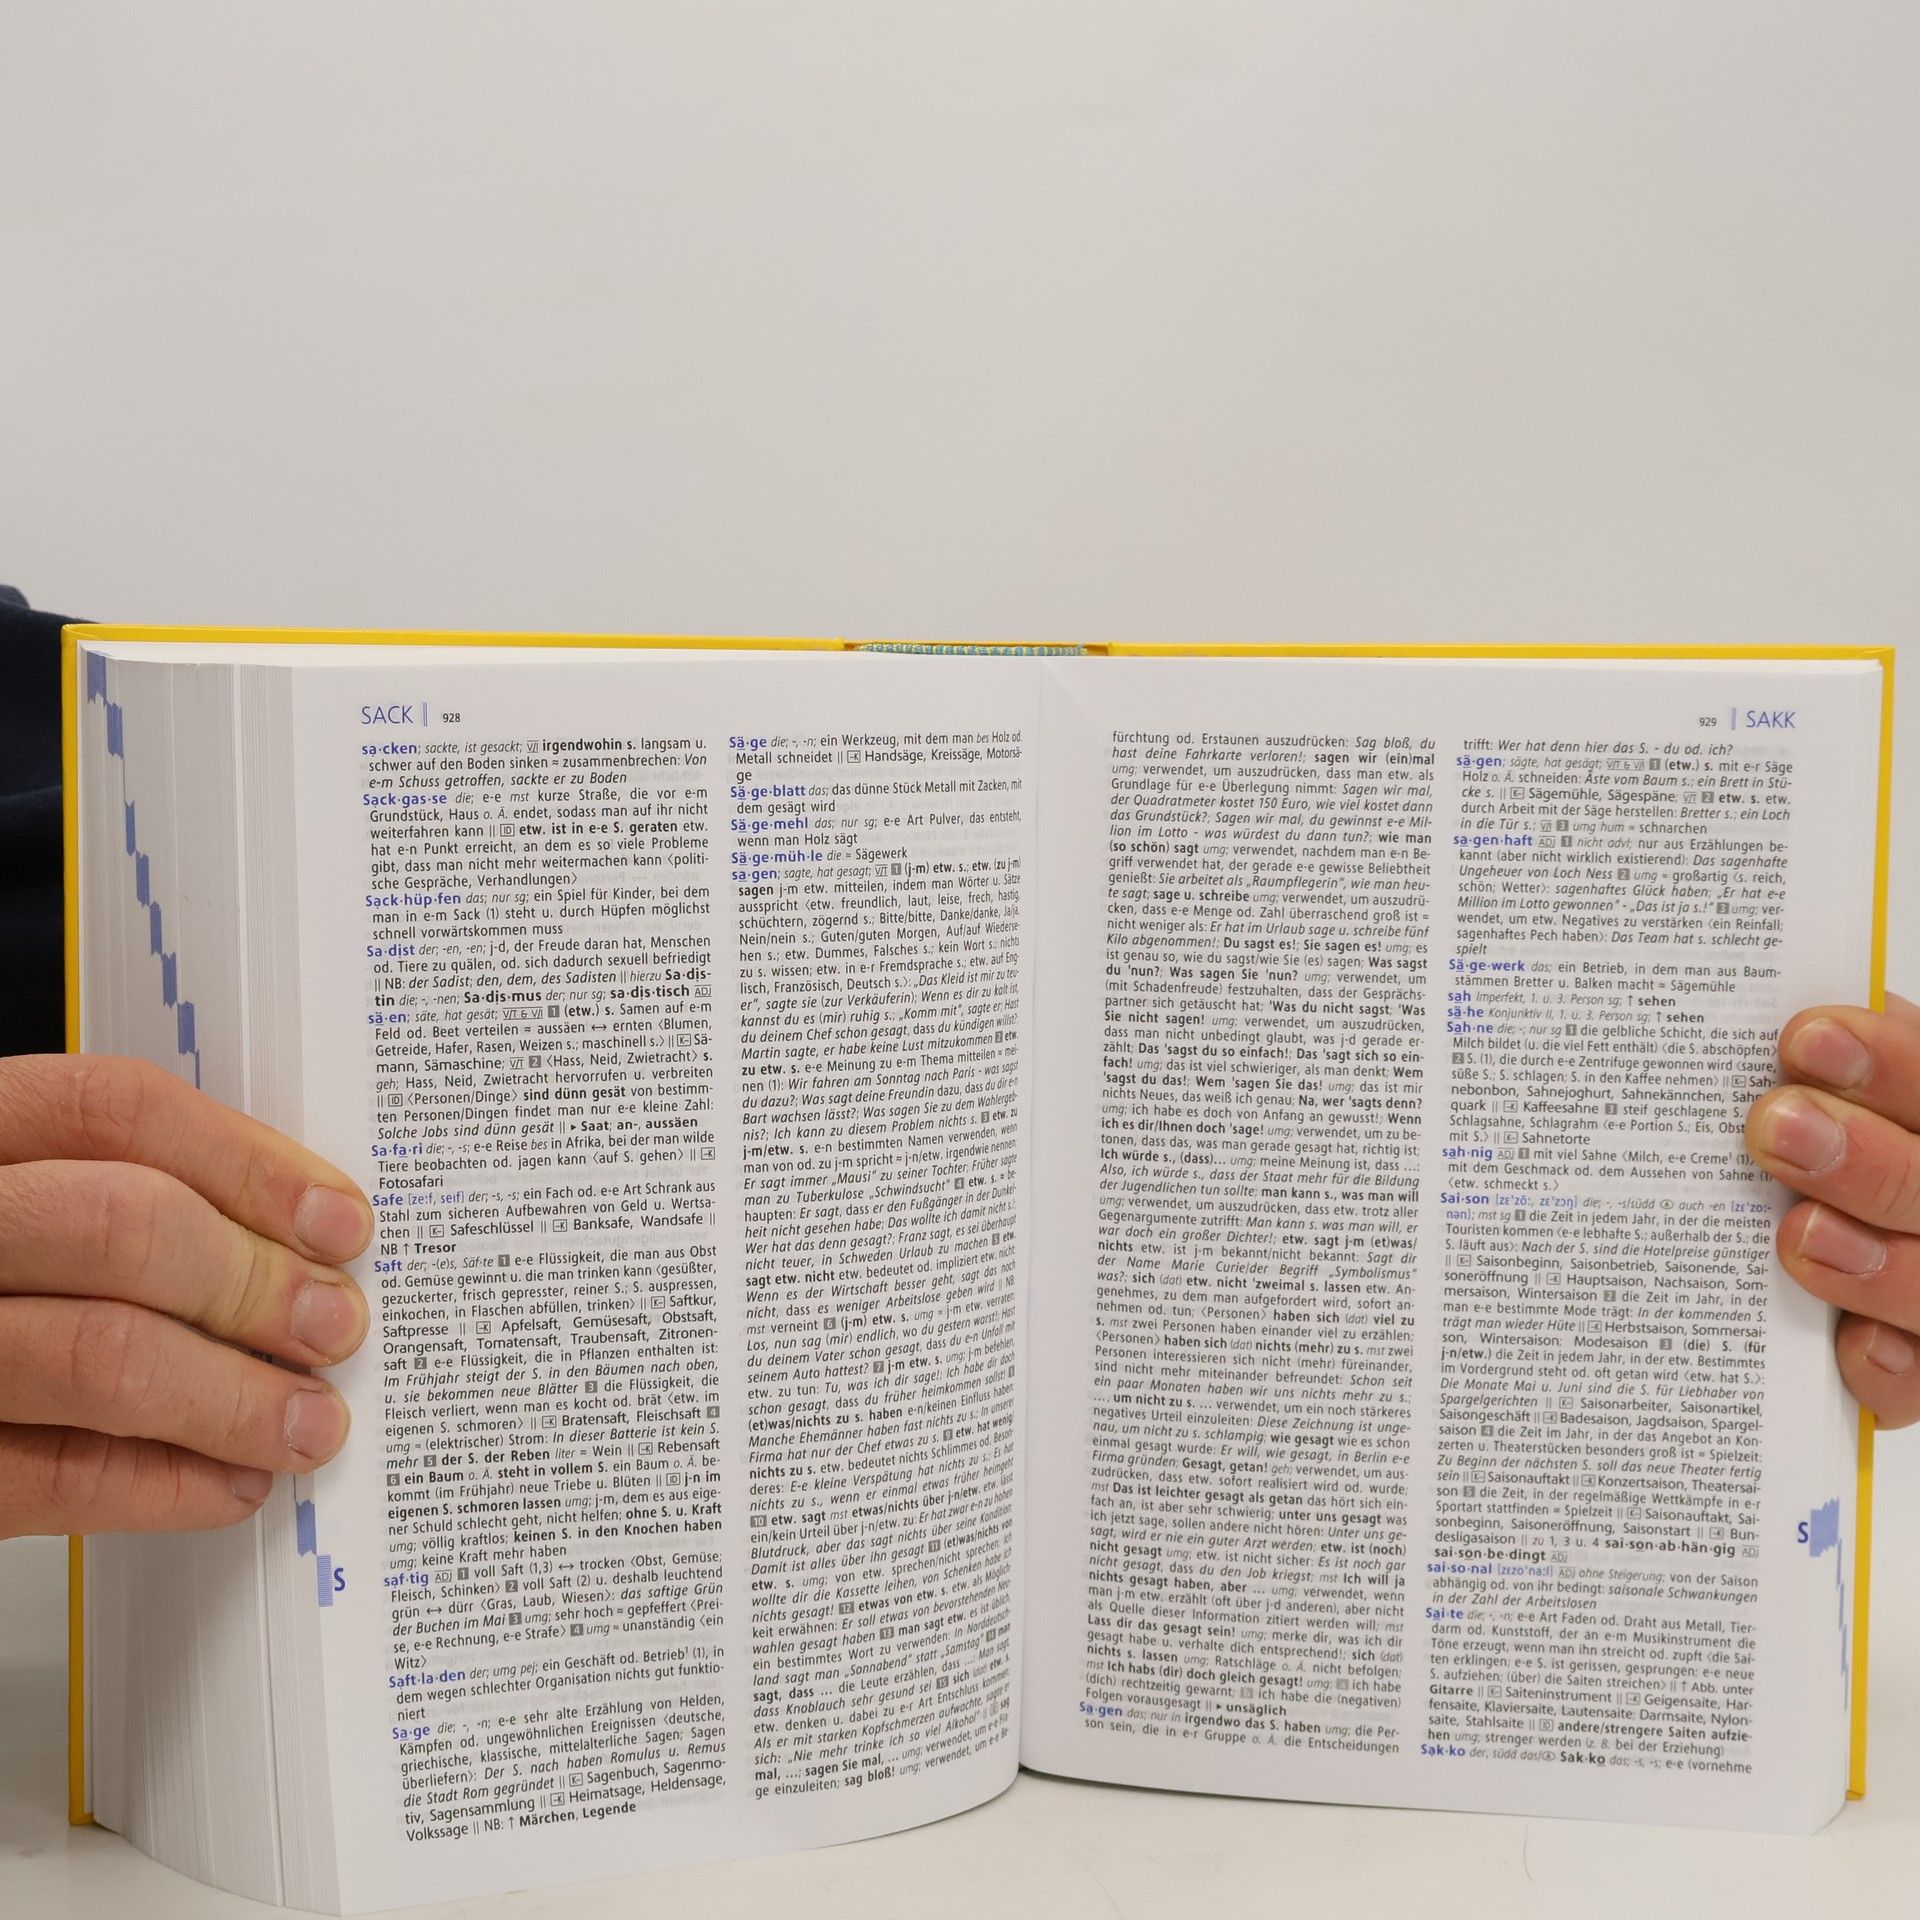 SACK 928
sa·cken; sackte, ist gesackt; VI irgendwohin s. langsam u.
schwer auf den Boden sinken ≈ zusammenbrechen: Von
e-m Schuss getroffen, sackte er zu Boden
Sack·gas·se die; e-e mst kurze Straße, die vor e-m
Grundstück, Haus o. Ä. endet, sodass man auf ihr nicht
weiterfahren kann || ID etw. ist in e-e S. geraten etw.
hat e-n Punkt erreicht, an dem es so viele Probleme
gibt, dass man nicht mehr weitermachen kann ⟨politi-
sche Gespräche, Verhandlungen⟩
Sack·hüp·fen das; nur sg; ein Spiel für Kinder, bei dem
man in e-m Sack (1) steht u. durch Hüpfen möglichst
schnell vorwärtskommen muss
Sa·dist der; -en, -en; j-d, der Freude daran hat, Menschen
od. Tiere zu quälen, od. sich dadurch sexuell befriedigt
|| NB: der Sadist; den, dem, des Sadisten || hierzu Sa·dis-
tin die; -, -nen; Sa·dis·mus der; nur sg; sa·dis·tisch ADJ
sä·en; säte, hat gesät; VT & VI 1 (etw.) s. Samen auf e-m
Feld od. Beet verteilen ≈ aussäen ↔ ernten ⟨Blumen,
Getreide, Hafer, Rasen, Weizen s.; maschinell s.⟩ || K- Sä-
mann, Sämaschine; VT 2 ⟨Hass, Neid, Zwietracht⟩ s.
geh; Hass, Neid, Zwietracht hervorrufen u. verbreiten
|| ID ⟨Personen/Dinge⟩ sind dünn gesät von bestimm-
ten Personen/Dingen findet man nur e-e kleine Zahl:
Solche Jobs sind dünn gesät || ▸ Saat; an-, aussäen
Sa·fa·ri die; -, -s; e-e Reise bes in Afrika, bei der man wilde
Tiere beobachten od. jagen kann ⟨auf S. gehen⟩ || -K
Fotosafari
Safe [ze:f, seif] der; -s, -s; ein Fach od. e-e Art Schrank aus
Stahl zum sicheren Aufbewahren von Geld u. Wertsa-
chen || K- Safeschlüssel || -K Banksafe, Wandsafe ||
NB ↑ Tresor
Saft der; -(e)s, Säf·te 1 e-e Flüssigkeit, die man aus Obst
od. Gemüse gewinnt u. die man trinken kann ⟨gesüßter,
gezuckerter, frisch gepresster, reiner S.; S. auspressen,
einkochen, in Flaschen abfüllen, trinken⟩ || K- Saftkur,
Saftpresse || -K Apfelsaft, Gemüsesaft, Obstsaft,
Orangensaft, Tomatensaft, Traubensaft, Zitronen-
saft 2 e-e Flüssigkeit, die in Pflanzen enthalten ist:
Im Frühjahr steigt der S. in den Bäumen nach oben,
u. sie bekommen neue Blätter 3 die Flüssigkeit, die
Fleisch verliert, wenn man es kocht od. brät ⟨etw. im
eigenen S. schmoren⟩ || -K Bratensaft, Fleischsaft 4
umg ≈ (elektrischer) Strom: In dieser Batterie ist kein S.
mehr 5 der S. der Reben liter ≈ Wein || -K Rebensaft
6 ein Baum o. Ä. steht in vollem S. ein Baum o. Ä. be-
kommt (im Frühjahr) neue Triebe u. Blüten || ID j-n im
eigenen S. schmoren lassen umg; j-m, dem es aus eige-
ner Schuld schlecht geht, nicht helfen; ohne S. u. Kraft
umg; völlig kraftlos; keinen S. in den Knochen haben
umg; keine Kraft mehr haben
saf·tig ADJ 1 voll Saft (1,3) ↔ trocken ⟨Obst, Gemüse;
Fleisch, Schinken⟩ 2 voll Saft (2) u. deshalb leuchtend
grün ↔ dürr ⟨Gras, Laub, Wiesen⟩: das saftige Grün
der Buchen im Mai 3 umg; sehr hoch ≈ gepfeffert ⟨Prei-
se, e-e Rechnung, e-e Strafe⟩ 4 umg ≈ unanständig ⟨ein
Witz⟩
Saft·la·den der; umg pej; ein Geschäft od. Betrieb¹ (1), in
dem wegen schlechter Organisation nichts gut funktio-
niert
Sa·ge die; -, -n; e-e sehr alte Erzählung von Helden,
Kämpfen od. ungewöhnlichen Ereignissen ⟨deutsche,
griechische, klassische, mittelalterliche Sagen; Sagen
überliefern⟩: Der S. nach haben Romulus u. Remus
die Stadt Rom gegründet || K- Sagenbuch, Sagenmo-
tiv, Sagensammlung || -K Heimatsage, Heldensage,
Volkssage || NB: ↑ Märchen, Legende
S
Sä·ge die; -, -n; ein Werkzeug, mit dem man bes Holz od.
Metall schneidet || -K Handsäge, Kreissäge, Motorsä-
ge
Sä·ge·blatt das; das dünne Stück Metall mit Zacken, mit
dem gesägt wird
Sä·ge·mehl das; nur sg; e-e Art Pulver, das entsteht,
wenn man Holz sägt
Sä·ge·müh·le die ≈ Sägewerk
sa·gen; sagte, hat gesagt; VT 1 (j-m) etw. s.; etw. (zu j-m)
sagen j-m etw. mitteilen, indem man Wörter u. Sätze
ausspricht ⟨etw. freundlich, laut, leise, frech, hastig,
schüchtern, zögernd s.; Bitte/bitte, Danke/danke, Ja/ja,
Nein/nein s.; Guten/guten Morgen, Auf/auf Wiederse-
hen s.; etw. Dummes, Falsches s.; kein Wort s.; nichts
zu s. wissen; etw. in e-r Fremdsprache s.; etw. auf Eng-
lisch, Französisch, Deutsch s.⟩: „Das Kleid ist mir zu teu-
er“, sagte sie (zur Verkäuferin); Wenn es dir zu kalt ist,
kannst du es (mir) ruhig s.; „Komm mit“, sagte er; Hast
du deinem Chef schon gesagt, dass du kündigen willst?;
Martin sagte, er habe keine Lust mitzukommen 2 etw.
zu etw. s. e-e Meinung zu e-m Thema mitteilen ≈ mei-
nen (1): Wir fahren am Sonntag nach Paris - was sagst
du dazu?; Was sagt deine Freundin dazu, dass du dir e-n
Bart wachsen lässt?; Was sagen Sie zu dem Wahlergeb-
nis?; Ich kann zu diesem Problem nichts s. 3 etw. zu
j-m/etw. s. e-n bestimmten Namen verwenden, wenn
man von od. zu j-m spricht ≈ j-n/etw. irgendwie nennen:
Er sagt immer „Mausi“ zu seiner Tochter; Früher sagte
man zu Tuberkulose „Schwindsucht“ 4 etw. s. ≈ be-
haupten: Er sagt, dass er den Fußgänger in der Dunkel-
heit nicht gesehen habe; Das wollte ich damit nicht s.;
Wer hat das denn gesagt?; Franz sagt, es sei überhaupt
nicht teuer, in Schweden Urlaub zu machen 5 etw.
sagt etw. nicht etw. bedeutet od. impliziert etw. nicht:
Wenn es der Wirtschaft besser geht, sagt das noch
nicht, dass es weniger Arbeitslose geben wird || NB:
mst verneint 6 (j-m) etw. s. umg ≈ j-m etw. verraten:
Los, nun sag (mir) endlich, wo du gestern warst!; Hast
du deinem Vater schon gesagt, dass du e-n Unfall mit
seinem Auto hattest? 7 j-m etw. s. umg; j-m befehlen,
etw. zu tun: Tu, was ich dir sage!; Ich habe dir doch
schon gesagt, dass du früher heimkommen sollst! 8
(et)was/nichts zu s. haben e-n/keinen Einfluss haben:
Manche Ehemänner haben fast nichts zu s.; In unserer
Firma hat nur der Chef etwas zu s. 9 etw. hat wenig/
nichts zu s. etw. bedeutet nichts Schlimmes od. Beson-
deres: E-e kleine Verspätung hat nichts zu s.; Es hat
nichts zu s., wenn er einmal etwas früher heimgeht
10 etw. sagt mst etwas/nichts über j-n/etw. etw. lässt
ein/kein Urteil über j-n/etw. zu: Er hat zwar e-n zu hohen
Blutdruck, aber das sagt nichts über seine Kondition;
Damit ist alles über ihn gesagt 11 (et)was/nichts von
etw. s. umg; von etw. sprechen/nicht sprechen: Ich
wollte dir die Kassette leihen, von Schenken habe ich
nichts gesagt! 12 etwas von etw. s. etw. als Möglich-
keit erwähnen: Er soll etwas von bevorstehenden Neu-
wahlen gesagt haben 13 man sagt etw. es ist üblich,
ein bestimmtes Wort zu verwenden: In Norddeutsch-
land sagt man „Sonnabend“ statt „Samstag“ 14 man
sagt, dass ... die Leute erzählen, dass ...: Man sagt,
dass Knoblauch sehr gesund sei 15 sich (dat) etw. s.
etw. denken u. dabei zu e-r Art Entschluss kommen:
Als er mit starken Kopfschmerzen aufwachte, sagte er
sich: „Nie mehr trinke ich so viel Alkohol“ || ID sag
mal, ...; sagen Sie mal, ... umg; verwendet, um e-e Fra-
ge einzuleiten; sag bloß! umg; verwendet, um e-e Be-
929 SAKK
fürchtung od. Erstaunen auszudrücken: Sag bloß, du
hast deine Fahrkarte verloren!; sagen wir (ein)mal
umg; verwendet, um auszudrücken, dass man etw. als
Grundlage für e-e Überlegung nimmt: Sagen wir mal,
der Quadratmeter kostet 150 Euro, wie viel kostet dann
das Grundstück?; Sagen wir mal, du gewinnst e-e Mil-
lion im Lotto - was würdest du dann tun?; wie man
(so schön) sagt umg; verwendet, nachdem man e-n Be-
griff verwendet hat, der gerade e-e gewisse Beliebtheit
genießt: Sie arbeitet als „Raumpflegerin“, wie man heu-
te sagt; sage u. schreibe umg; verwendet, um auszudrü-
cken, dass e-e Menge od. Zahl überraschend groß ist ≈
nicht weniger als: Er hat im Urlaub sage u. schreibe fünf
Kilo abgenommen!; Du sagst es!; Sie sagen es! umg; es
ist genau so, wie du sagst/wie Sie (es) sagen; Was sagst
du 'nun?; Was sagen Sie 'nun? umg; verwendet, um
(mit Schadenfreude) festzuhalten, dass der Gesprächs-
partner sich getäuscht hat; 'Was du nicht sagst; 'Was
Sie nicht sagen! umg; verwendet, um auszudrücken,
dass man nicht unbedingt glaubt, was j-d gerade er-
zählt; Das 'sagst du so einfach!; Das 'sagt sich so ein-
fach! umg; das ist viel schwieriger, als man denkt; Wem
'sagst du das!; Wem 'sagen Sie das! umg; das ist mir
nichts Neues, das weiß ich genau; Na, wer 'sagts denn?
umg; ich habe es doch von Anfang an gewusst!; Wenn
ich es dir/Ihnen doch 'sage! umg; verwendet, um zu be-
tonen, dass das, was man gerade gesagt hat, richtig ist;
Ich würde s., (dass)... umg; meine Meinung ist, dass ...:
Also, ich würde s., dass der Staat mehr für die Bildung
der Jugendlichen tun sollte; man kann s., was man will
umg; verwendet, um auszudrücken, dass etw. trotz aller
Gegenargumente zutrifft: Man kann s. was man will, er
war doch ein großer Dichter!; etw. sagt j-m (et)was/
nichts etw. ist j-m bekannt/nicht bekannt: Sagt dir
der Name Marie Curie/der Begriff „Symbolismus“
was?; sich (dat) etw. nicht 'zweimal s. lassen etw. An-
genehmes, zu dem man aufgefordert wird, sofort an-
nehmen od. tun; ⟨Personen⟩ haben sich (dat) viel zu
s. mst zwei Personen haben einander viel zu erzählen;
⟨Personen⟩ haben sich (dat) nichts (mehr) zu s. mst zwei
Personen interessieren sich nicht (mehr) füreinander,
sind nicht mehr miteinander befreundet: Schon seit
ein paar Monaten haben wir uns nichts mehr zu s.;
..., um nicht zu s. ... verwendet, um ein noch stärkeres
negatives Urteil einzuleiten: Diese Zeichnung ist unge-
nau, um nicht zu s. schlampig; wie gesagt wie es schon
einmal gesagt wurde: Er will, wie gesagt, in Berlin e-e
Firma gründen; Gesagt, getan! geh; verwendet, um aus-
zudrücken, dass etw. sofort realisiert wird od. wurde;
mst Das ist leichter gesagt als getan das hört sich ein-
fach an, ist aber sehr schwierig; unter uns gesagt was
ich jetzt sage, sollen andere nicht hören: Unter uns ge-
sagt, wird er nie ein guter Arzt werden; etw. ist (noch)
nicht gesagt umg; etw. ist nicht sicher: Es ist noch gar
nicht gesagt, dass du den Job kriegst; mst Ich will ja
nichts gesagt haben, aber ... umg; verwendet, wenn
man j-m etw. erzählt (oft über j-d anderen), aber nicht
als Quelle dieser Information zitiert werden will; mst
Lass dir das gesagt sein! umg; merke dir, was ich dir
gesagt habe u. verhalte dich entsprechend!; sich (dat)
nichts s. lassen umg; Ratschläge o. Ä. nicht befolgen;
mst Ich habs (dir) doch gleich gesagt! umg; a ich habe
(dich) rechtzeitig gewarnt; b ich habe die (negativen)
Folgen vorausgesagt || ▸ unsäglich
Sa·gen das; nur in irgendwo das S. haben umg; die Per-
son sein, die in e-r Gruppe o. Ä. die Entscheidungen
trifft: Wer hat denn hier das S. - du od. ich?
sä·gen; sägte, hat gesägt; VT & VI 1 (etw.) s. mit e-r Säge
Holz o. Ä. schneiden: Äste vom Baum s.; ein Brett in Stü-
cke s. || K- Sägemühle, Sägespäne; VT 2 etw. s. etw.
durch Arbeit mit der Säge herstellen: Bretter s.; ein Loch
in die Tür s.; VI 3 umg hum ≈ schnarchen
sa·gen·haft ADJ 1 nicht adv!; nur aus Erzählungen be-
kannt (aber nicht wirklich existierend): Das sagenhafte
Ungeheuer von Loch Ness 2 umg ≈ großartig ⟨s. reich,
schön; Wetter⟩: sagenhaftes Glück haben; „Er hat e-e
Million im Lotto gewonnen“ - „Das ist ja s.!“ 3 umg; ver-
wendet, um etw. Negatives zu verstärken ⟨ein Reinfall;
sagenhaftes Pech haben⟩: Das Team hat s. schlecht ge-
spielt
Sä·ge·werk das; ein Betrieb, in dem man aus Baum-
stämmen Bretter u. Balken macht ≈ Sägemühle
sah Imperfekt, 1. u. 3. Person sg; ↑ sehen
sä·he Konjunktiv II, 1. u. 3. Person sg; ↑ sehen
Sah·ne die; -; nur sg 1 die gelbliche Schicht, die sich auf
Milch bildet (u. die viel Fett enthält) ⟨die S. abschöpfen⟩
2 S. (1), die durch e-e Zentrifuge gewonnen wird ⟨saure,
süße S.; S. schlagen; S. in den Kaffee nehmen⟩ || K- Sah-
nebonbon, Sahnejoghurt, Sahnekännchen,
quark || -K Kaffeesahne 3 steif geschlagene S.
Schlagsahne, Schlagrahm ⟨e-e Portion S.; Eis, Obst
mit S.⟩ || K- Sahnetorte
sah·nig ADJ 1 mit viel Sahne ⟨Milch, e-e Creme¹ (1)
mit dem Geschmack od. dem Aussehen von Sahne (1)
⟨etw. schmeckt s.⟩
Sai·son [zɛˈzõ:, zɛˈzɔŋ] die; -, -s/südd Ⓐ auch -en [zɛˈzo:-
nən]; mst sg 1 die Zeit in jedem Jahr, in der die meisten
Touristen kommen ⟨e-e lebhafte S.; außerhalb der S.; die
S. läuft aus⟩: Nach der S. sind die Hotelpreise günstiger
|| K- Saisonbeginn, Saisonbetrieb, Saisonende, Sai-
soneröffnung || -K Hauptsaison, Nachsaison, Som-
mersaison, Wintersaison 2 die Zeit im Jahr, in der
man e-e bestimmte Mode trägt: In der kommenden S.
trägt man wieder Hüte || -K Herbstsaison, Sommersai-
son, Wintersaison; Modesaison 3 (die) S. (für
j-n/etw.) die Zeit in jedem Jahr, in der etw. Bestimmtes
im Vordergrund steht od. oft getan wird ⟨etw. hat S.⟩:
Die Monate Mai u. Juni sind die S. für Liebhaber von
Spargelgerichten || K- Saisonarbeiter, Saisonartikel,
Saisongeschäft || -K Badesaison, Jagdsaison, Spargel-
saison 4 die Zeit im Jahr, in der das Angebot an Kon-
zerten u. Theaterstücken besonders groß ist ≈ Spielzeit:
Zu Beginn der nächsten S. soll das neue Theater fertig
sein || K- Saisonauftakt || -K Konzertsaison, Theatersai-
son 5 die Zeit, in der regelmäßige Wettkämpfe in e-r
Sportart stattfinden ≈ Spielzeit || K- Saisonauftakt, Sai-
sonbeginn, Saisoneröffnung, Saisonstart || -K Bun-
desligasaison || zu 1, 3 u. 4 sai·son·ab·hän·gig ADJ
sai·son·be·dingt ADJ
sai·so·nal [zɛzoˈna:l] ADJ ohne Steigerung; von der Saison
abhängig od. von ihr bedingt: saisonale Schwankungen
in der Zahl der Arbeitslosen
Sai·te die; -, -n; e-e Art Faden od. Draht aus Metall, Tier-
darm od. Kunststoff, der an e-m Musikinstrument die
Töne erzeugt, wenn man ihn streicht od. zupft ⟨die Sai-
ten erklingen; e-e S. ist gerissen, gesprungen; e-e neue
S. aufziehen; (über) die Saiten streichen⟩ || ↑ Abb. unter
Gitarre || K- Saiteninstrument || -K Geigensaite, Har-
fensaite, Klaviersaite, Lautensaite; Darmsaite, Nylon-
saite, Stahlsaite || ID andere/strengere Saiten aufzie-
hen umg; strenger werden (z. B. bei der Erziehung)
Sak·ko der, südd das/Ⓐ Sak·ko das; -s, -s; e-e (vornehme
S